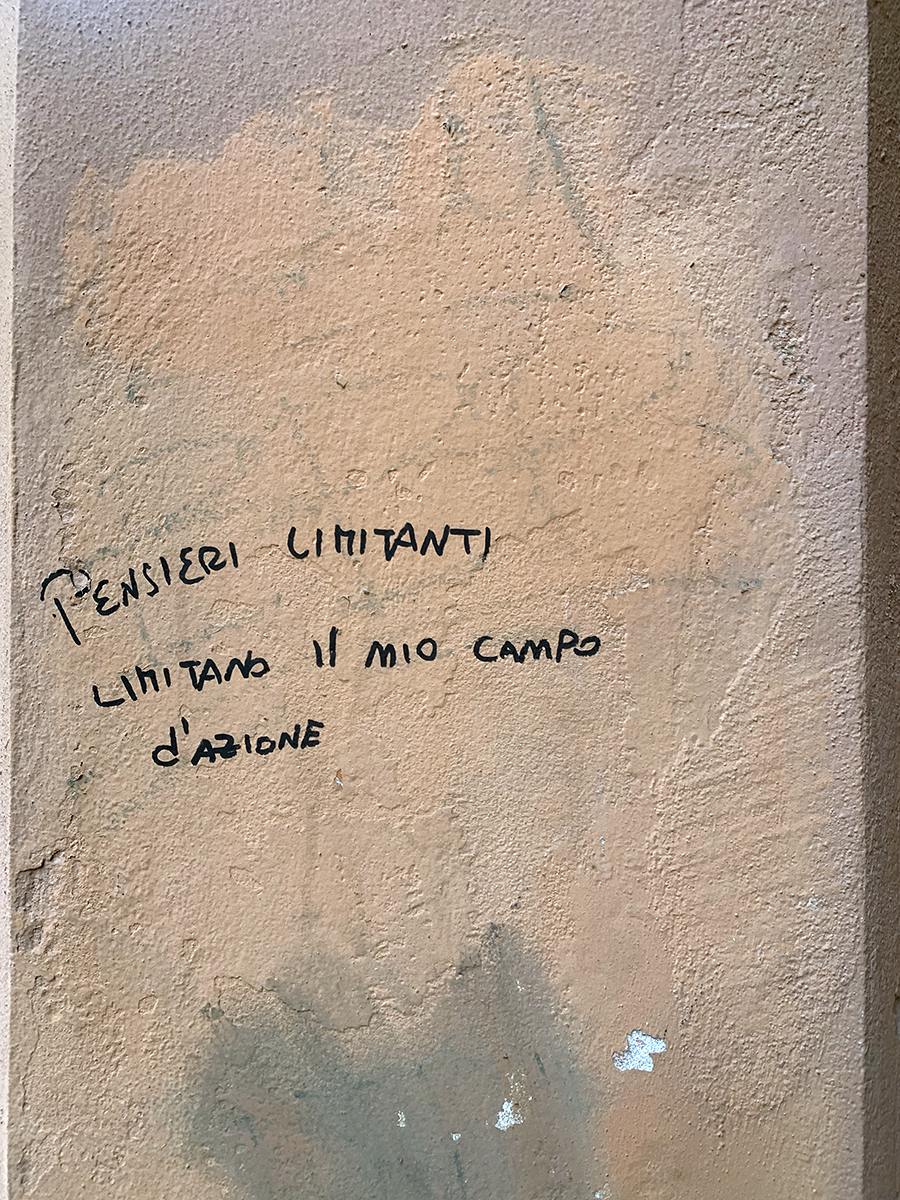 PENSIERI LIMITANTI
LIMITANO Il MIO CAMPO
d'AZIONE